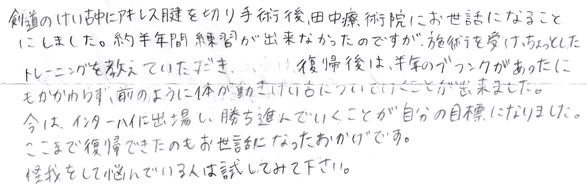 剣道のけい古中にアキレス腱を切り手術後、田中療術院にお世話になること
にしました。約半年間練習が出来なかったのですが、施術を受け、ちょっとした
トレーニングを教えていただき、復帰後は、半年のブランクがあったに
もかかわらず、前のように体が動きけい古についていくことが出来ました。
今は、インターハイに出場し、勝ち進んでいくことが自分の目標になりました。
ここまで復帰できたのもお世話になったおかげです。
怪我をして悩んでいる人は試してみて下さい。